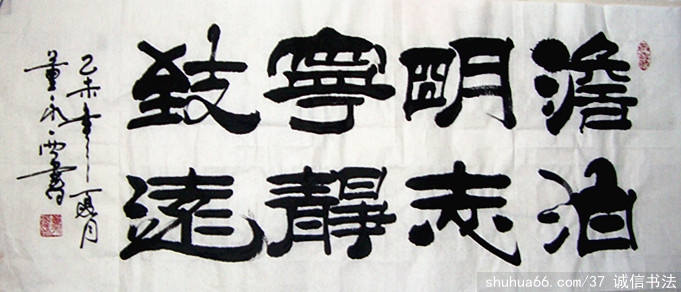 澹泊
明志
寧靜
致遠
乙未年月
董永西書
shuhua66.com/37 诚信书法